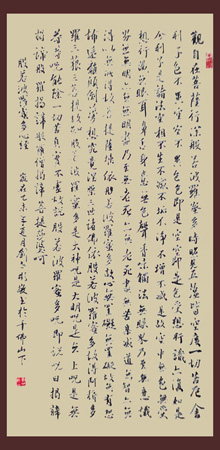 觀自在菩薩行深般若波羅蜜多時照見五蘊皆空度一切苦厄舍
利子色不異空空不異色色即是空空即是色受想行識亦復如是
舍利子是諸法空相不生不滅不垢不淨不增不減是故空中無色無受
想行識無眼耳鼻舌身意無色聲香味觸法無眼界乃至無意識
界無無明亦無無明盡乃至無老死亦無老死盡無苦集滅道無智亦無
得以無所得故菩提薩埵依般若波羅蜜多故心無罣礙無罣礙故無有恐
怖遠離顛倒夢想究竟涅槃三世諸佛依般若波羅蜜多故得阿耨多
羅三藐三菩提故知般若波羅蜜多是大神咒是大明咒是無上咒是無
等等咒能除一切苦真實不虛故說般若波羅蜜多咒即說咒曰揭諦
揭諦波羅揭諦波羅僧揭諦菩提薩婆訶
般若波羅蜜多心經 歲在乙未 月 於千佛山下